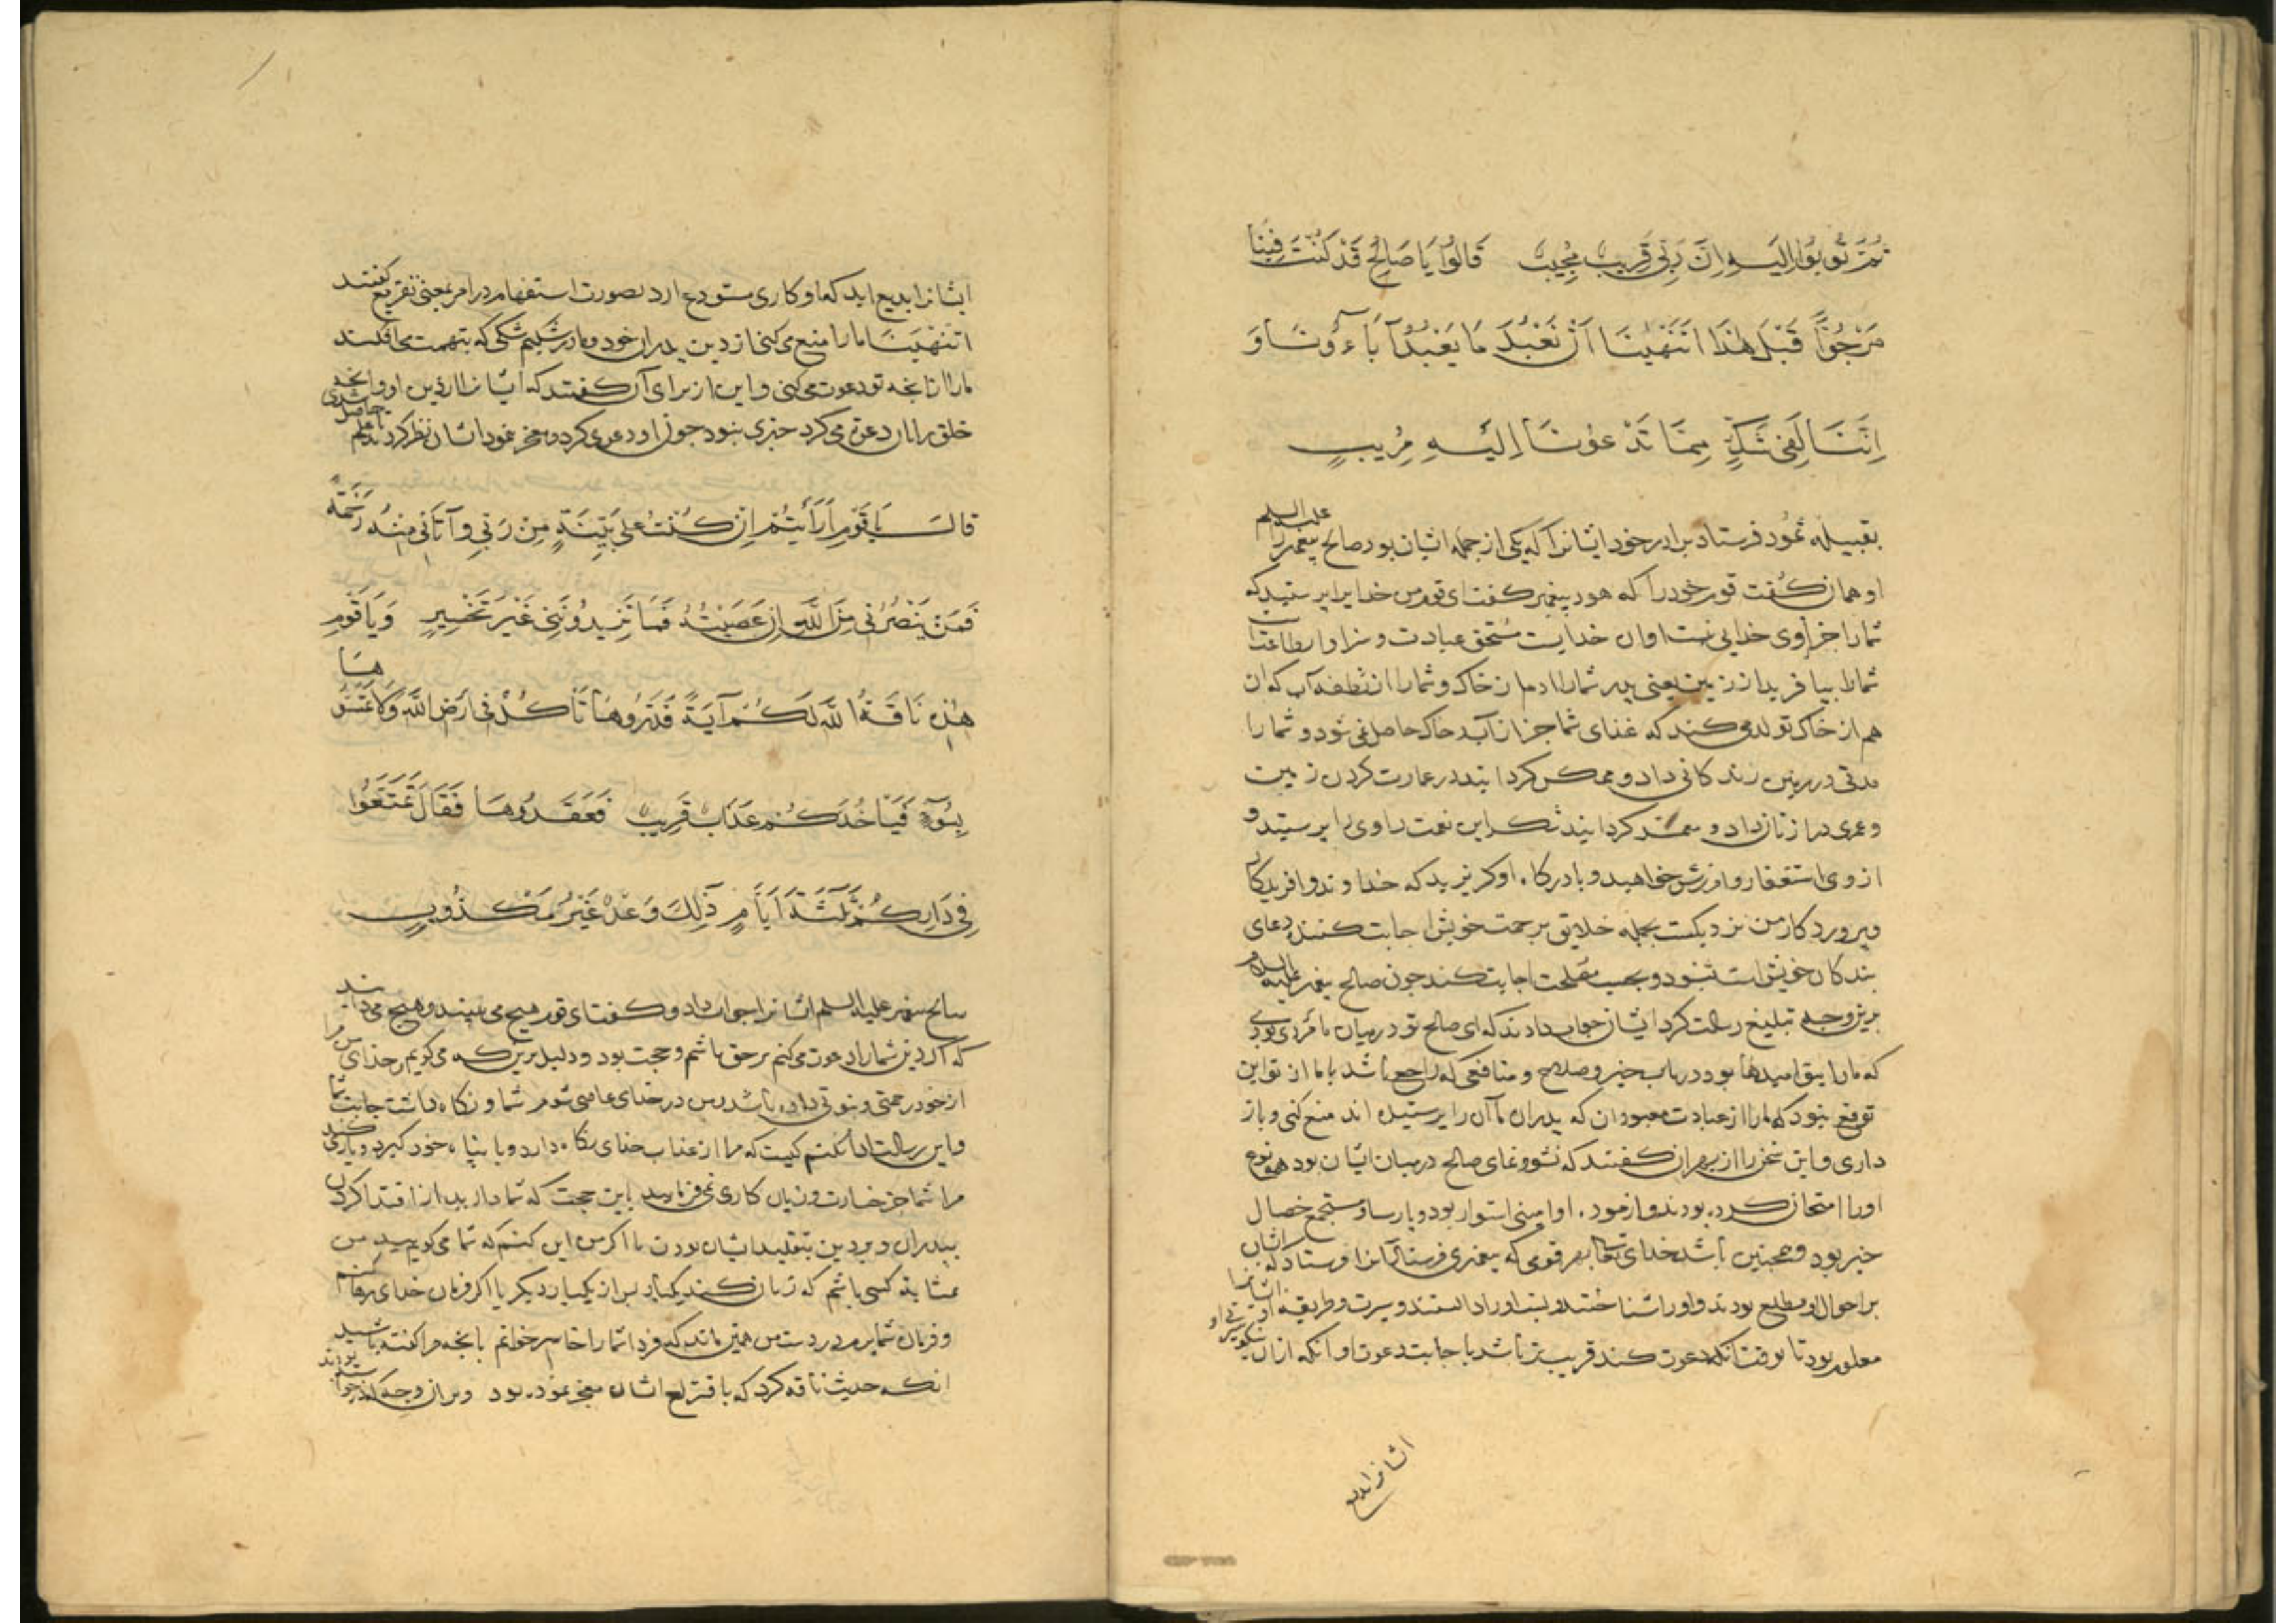 ثُمَّ تُوبُوا اِلَيهِ اِنَّ رَبِّي قَرِيبٌ مُجِيبٌ قَالُوا يَا صَالِحُ قَدْ كُنْتَ فِينَا
مَرْجُوًّا قَبْلَ هٰذَا اَتَنْهٰينَا اَنْ نَعْبُدَ مَا يَعْبُدُ آبَآءُونَا وَ
اِنَّنَا لَفِي شَكٍّ مِمَّا تَدْعُونَا اِلَيهِ مُرِيبٍ
بقبیله ثمود فرستاد برادر خود ایشانرا که یکی از جمله ایشان بود صالح پیغمبر را علیه السلم
او همان کفت قوم خود را که هود پیغمبر کفت ای قوم من خدایرا پرستید که
شما را جز از وی خدایی نیست او ان خدایست مستحق عبادت و سزاوار طاعت
شما را بیافرید از زمین یعنی پدر شما را ادم از خاک و شما را از نطفه آب که ان
هم از خاک تولد می کند که غذای شما جز از آب و خاک حاصل نمی شود و شما را
مدتی در زمین زندکانی داد و ممکن کردانید در عمارت کردن زمین
و عمری دراز تان داد و کردانید شکر این نعمت را وی را پرستید و
از وی استغفار و امرزش خواهید و با درکاه او کریزید که خداوند و افریدکار
و پروردکار من نزدیکست بجمله خلایق برحمت خویش اجابت کننده دعای
بندکان خویش است شنود و بحسب مصلحت اجابت کند چون صالح پیغمبر علیه السلام
برین وجه تبلیغ رسالت کرد ایشان جواب دادند که ای صالح تو در میان ما مردی بودی
که ما را بتو امیدها بود در باب خیر و صلاح و منافعی که راجع باشد با ما از تو این
توقع نبود که ما را از عبادت معبودان که پدران ما آن را پرستیده اند منع کنی و باز
داری و این سخن را از بهر ان کفتند که نشو و نمای صالح در میان ایشان بود
اورا امتحان کرده بودند و ازموده او امینی استوار بود و پارسا و مستجمع خصال
خیر بود و همچنین باشد خدای تعالی بهر قومی که پیغمبری فرستاد
بر احوال او مطلع بودند و او را شناختند و نسب او را دانستند و سیرت و طریقه او
معلوم بود تا بوقت انکه دعوت کند قریب تر باشد با اجابت دعوت او و انکه از ان
ایشانرا بدیع
ایشانرا بدیع اید که او کاری مستودع ارد بصورت استفهام در امر بمعنی تقریع کفتند
اتنهینا ما را منع می کنی از دین پدران خود و ما در شکیم شکی که بتهمت می افکند
ما را از آنچه تو دعوت می کنی و این از برای آن کفتند که ایشانرا از دین او و آنچه
خلق را بان دعوت می کرد خبری نبود چون او دعوی کرد و معجز نمود ایشان نظر کردند
قَالَ يَا قَوْمِ اَرَأَيْتُمْ اِنْ كُنْتُ عَلَى بَيِّنَةٍ مِنْ رَبِّي وَآتَانِي مِنْهُ رَحْمَةً
فَمَنْ يَنْصُرُنِي مِنَ اللّٰهِ اِنْ عَصَيْتُهُ فَمَا تَزِيدُونَنِي غَيْرَ تَخْسِيرٍ وَيَا قَوْمِ
هٰذِهِ نَاقَةُ اللّٰهِ لَكُمْ آيَةً فَذَرُوهَا تَأْكُلْ فِي اَرْضِ اللّٰهِ وَلَا تَمَسُّوهَا
بِسُوءٍ فَيَأْخُذَكُمْ عَذَابٌ قَرِيبٌ فَعَقَرُوهَا فَقَالَ تَمَتَّعُوا
فِي دَارِكُمْ ثَلٰثَةَ اَيَّامٍ ذٰلِكَ وَعْدٌ غَيْرُ مَكْذُوبٍ
صالح پیغمبر علیه السلم ایشانرا جواب داد و کفت ای قوم هیچ می بینید و هیچ می دانید
که اکر من شما را دعوت می کنم بر حق باشم و حجت بود و دلیل برین که می کویم و خدای مرا
از خود رحمتی و نبوتی داده باشد پس در خدای عاصی شوم شما و نکاه داشت جانب شما
و این رسالت ادا نکنم کیست که مرا از عذاب خدای نکاه دارد و با پناه خود کیرد و یاری کند
مرا شما جز خسارت و زیان کاری نمی فزایید باین حجت که شما دارید از اقتدا کردن
بپدران و بر دین بتقلید ایشان بودن یا اکر من این کنم که شما می کویید من
بمثابه کسی باشم که زیان کند یکبار پس از یکبار دیکر یا اکر فرمان خدای رها کنم
و فرمان شما برم در دست من همین ماند که فردا شما را خاسر خوانم بآنچه مرا کفته باشید
انکه حدیث ناقه کرد که باقتراح ایشان معجز نموده بود و بران وجه که